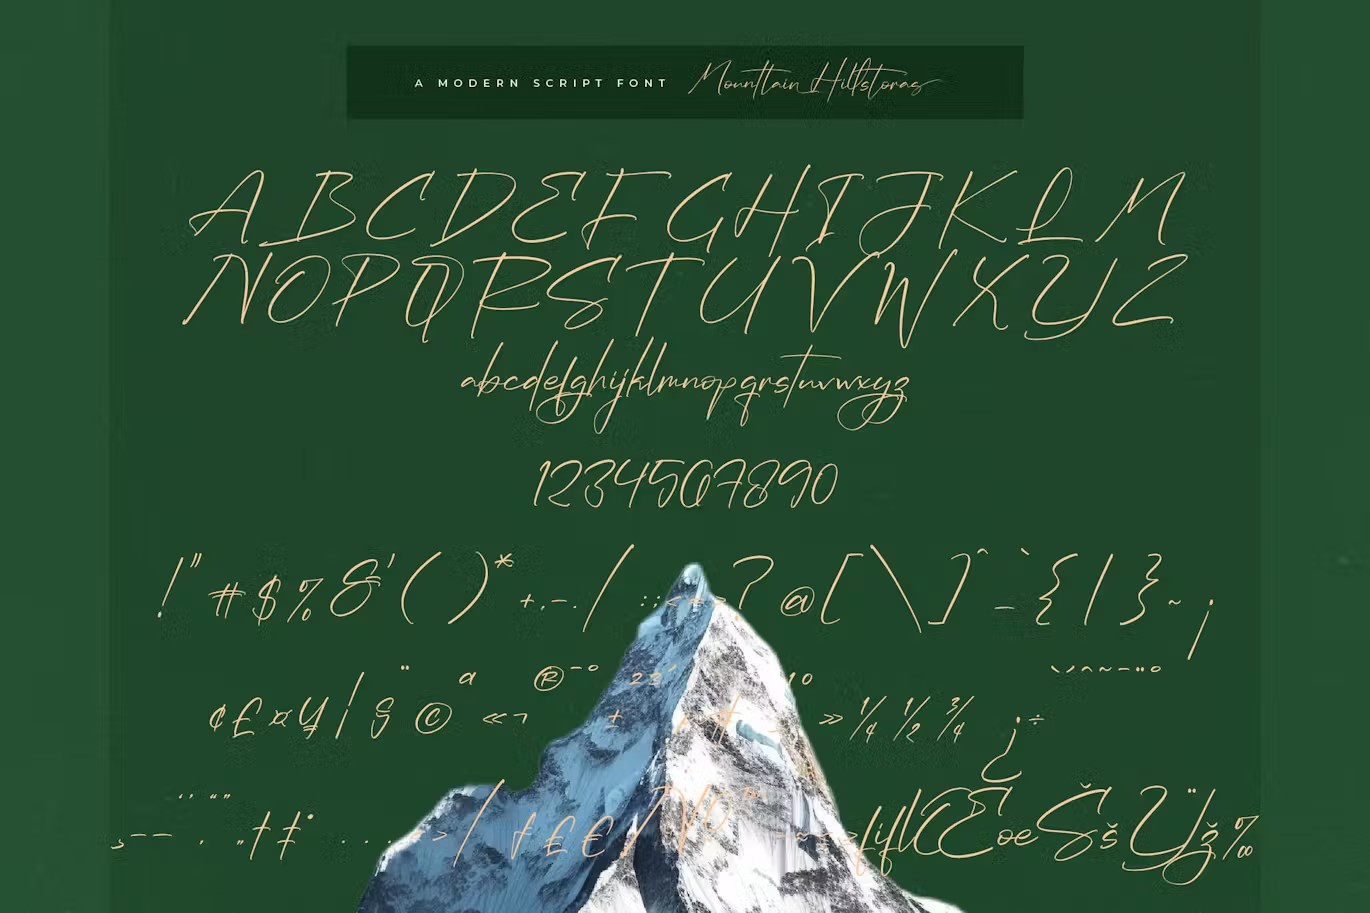 A MODERN SCRIPT FONT Mounttain Hillstoras
ABCDEFGHIJKLM
NOPQRSTUVWXYZ
abcdefghijklmnopqrstuvwxyz
1234567890
!"#$%&'()*+,-./:;<=>?@[\]^_`{|}~¡
¢£¤¥¦§¨©ª«¬®¯°±²³´¶¹º»¼½¾¿÷
†‡•…‹›⁄ƒ££€№™−≈≠≤≥fiflŒœŠšŸž‰